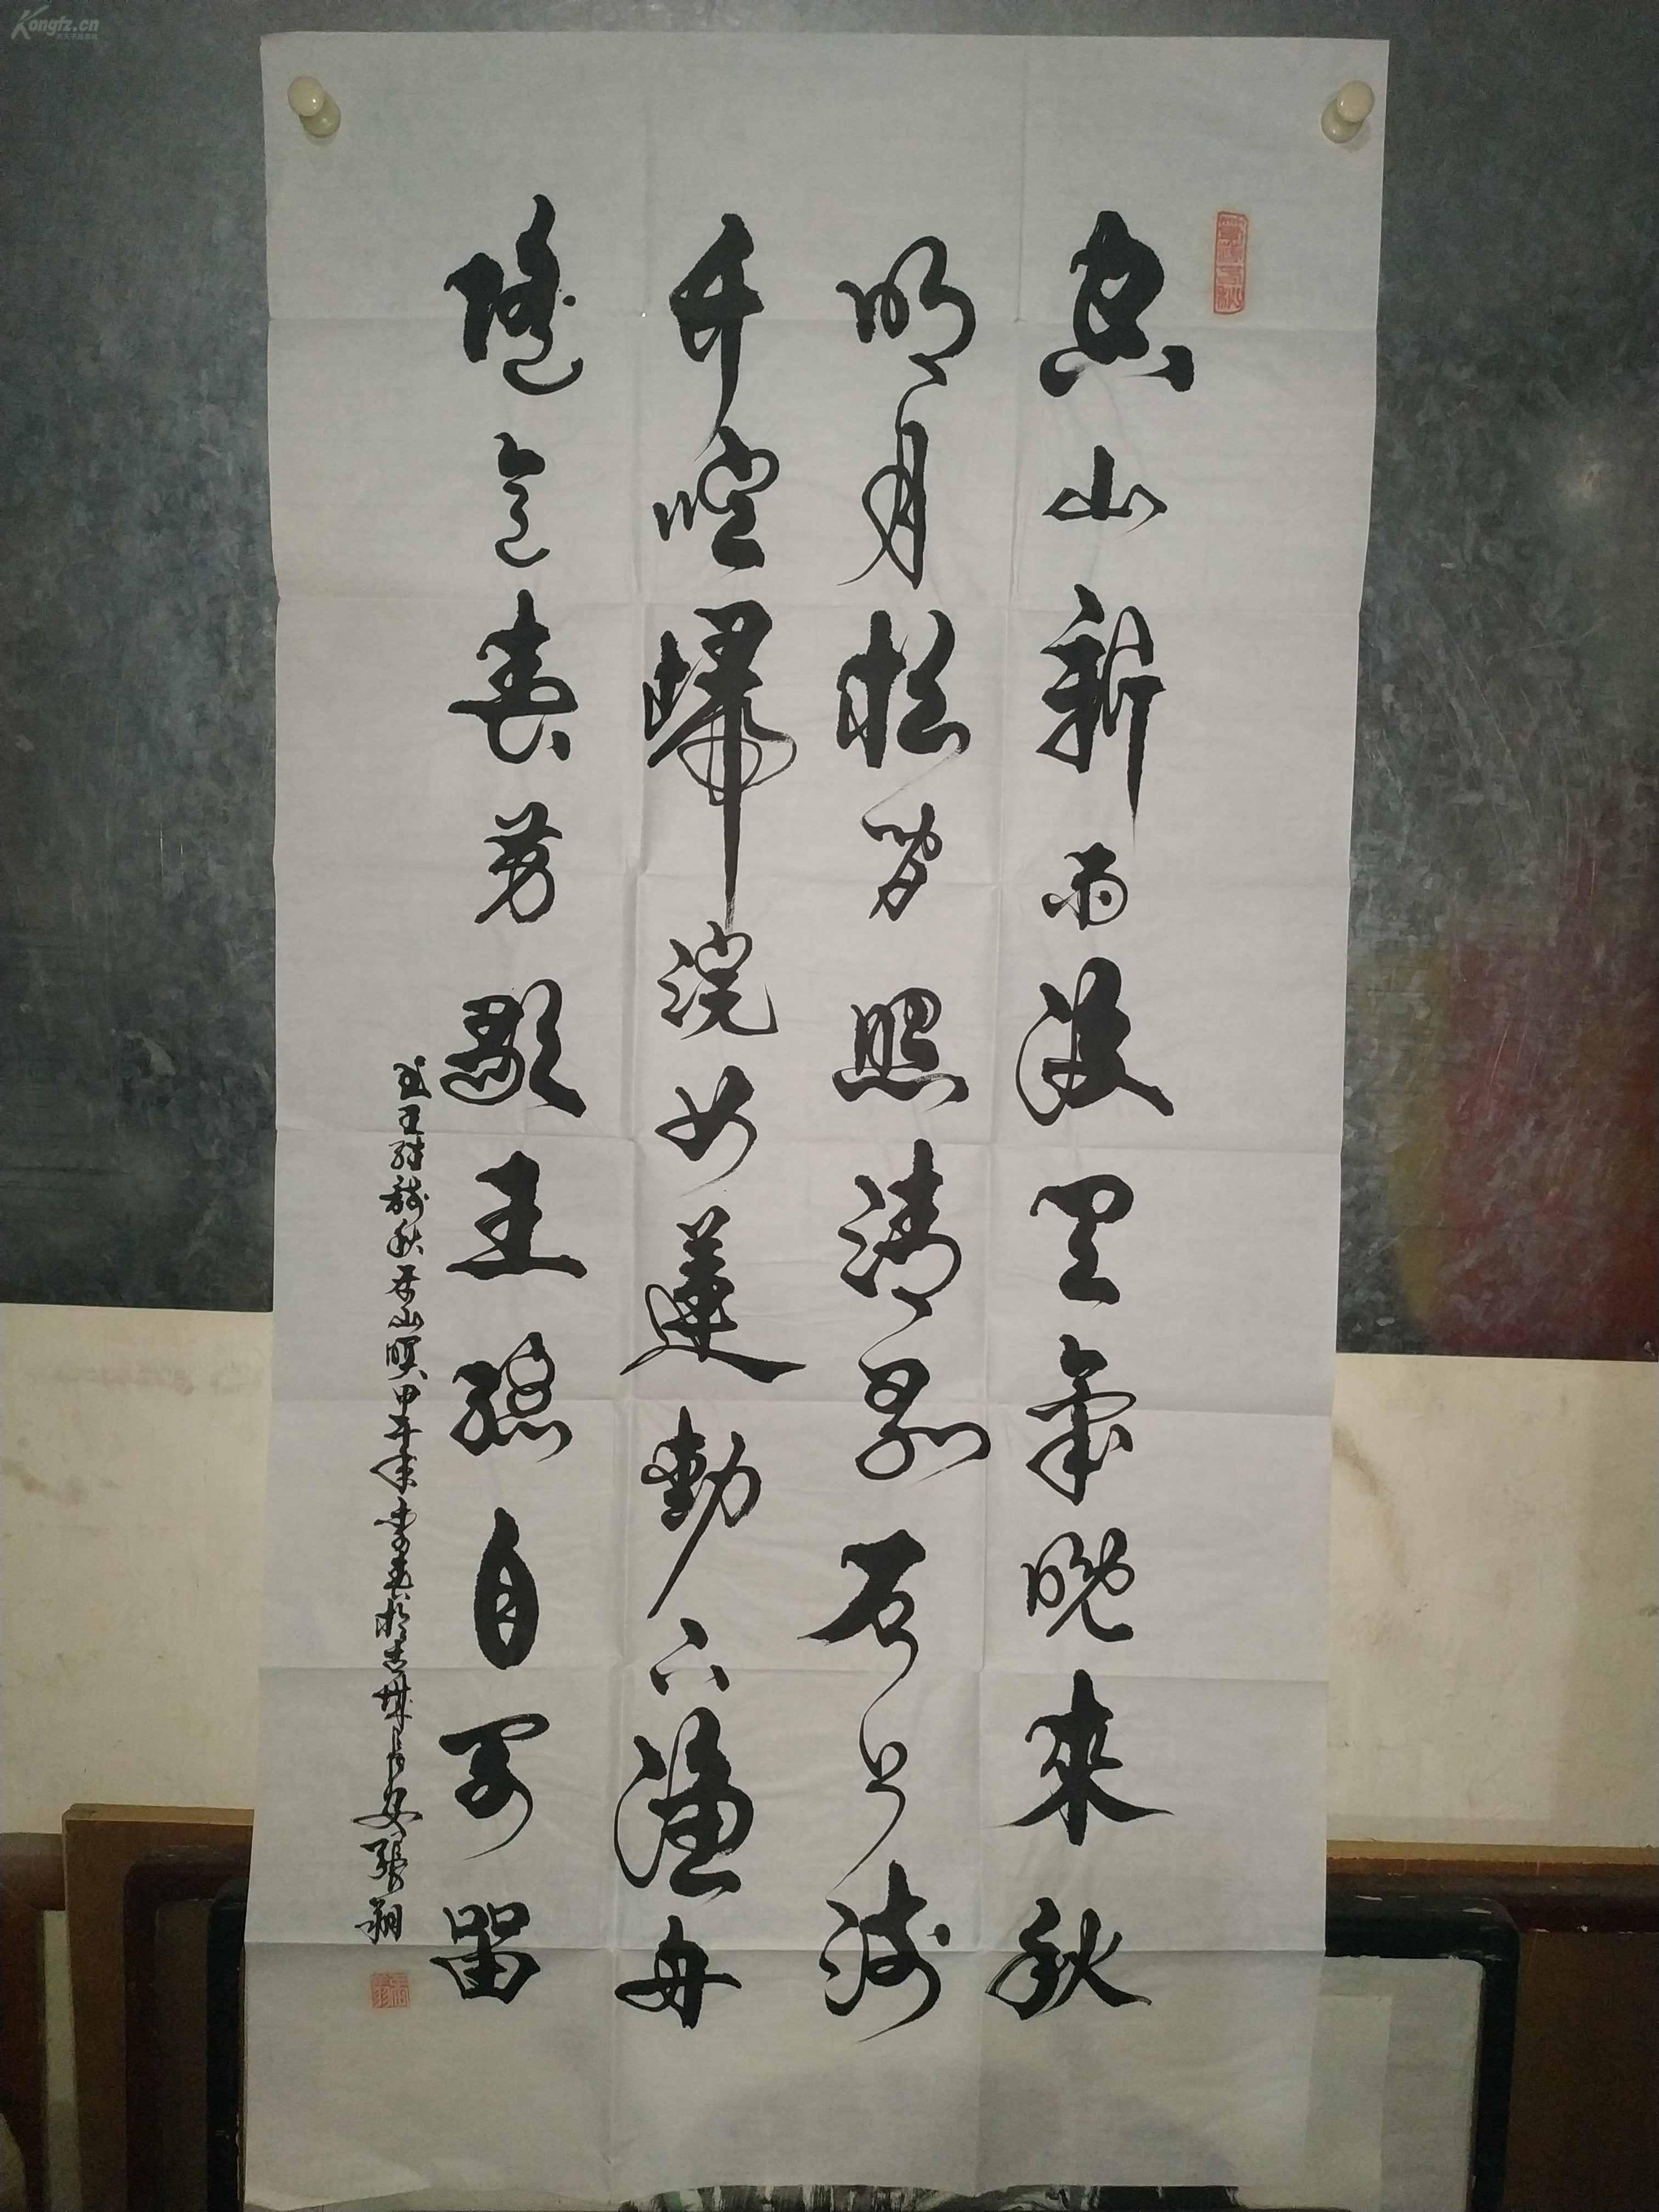 空山新雨後天氣晚來秋
明月松間照清泉石上流
竹喧歸浣女蓮動下漁舟
隨意春芳歇王孫自可留
王維詩秋居山暝甲午年季春於吉林長安張翔
Kongfz.cn